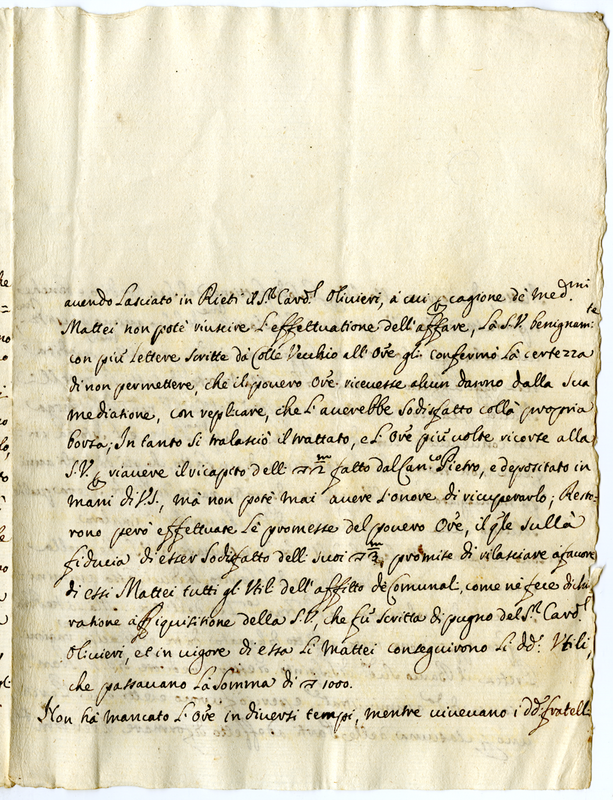 auendo Lasciato in Rieti il S.r Card.l Oliuieri, à cui p cagione de Med.mi
Mattei non potè riuscire L'effettuatione dell'affare, La S.V. benignam.te
con più Lettere scritte da Colle Vecchio all'Ore gli confermò La certezza
di non permettere, che il pouero Ore riceuesse alcun danno dalla sua
mediatione, con replicare, che L'auerebbe sodisfatto colla propria
borsa; In tanto si tralasciò il trattato, e L'Ore più uolte ricorse alla
S.V. p riauere il ricapito dell fatto dal Can.co Pietro, e depositato in
mani di V.S., mà non potè mai auere L'onore di ricuperarlo; Resto-
rono però effettuate Le promesse del pouero Ore, il q̃le sulla
fiducia di esser Sodisfatto dell suoi promise di rilasciare à fauore
di essi Mattei tutti gl'Utili dell'affitto de Comunali, come ne fece dichia
ratione à requisitione della S.V., che fù scritta di pugno del S.r Card.l
Oliuieri, et in uigore di essa Li Mattei conseguirono Li dd.i Utili,
che passauano La Somma di 1000.
Non hà mancato L'Ore in diuersi tempi, mentre uiueuano i dd.i fratelli